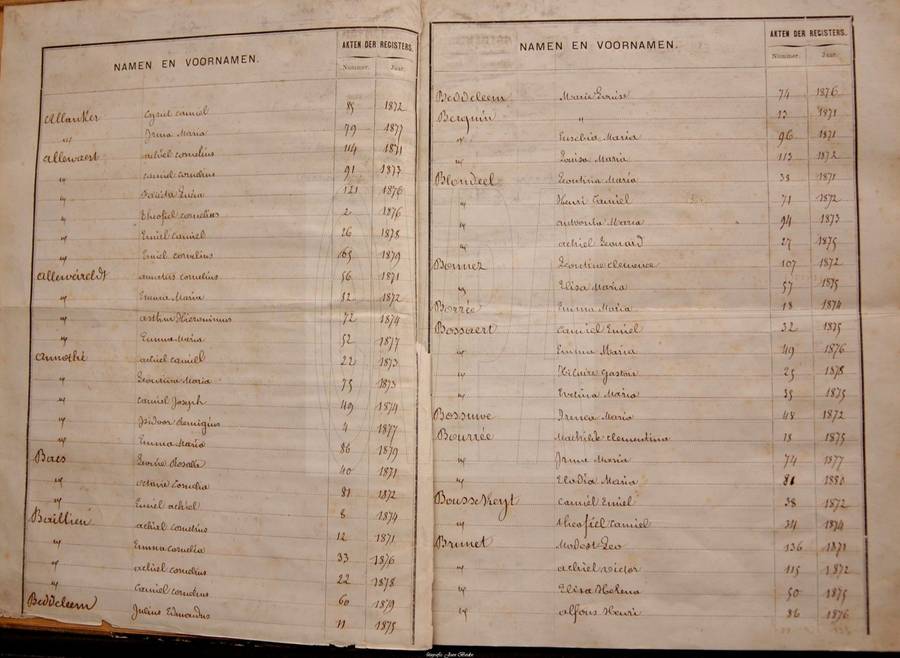 NAMEN EN VOORNAMEN. AKTEN DER REGISTERS.
Nummer. Jaar.
Allanker Cyriel Camiel 85 1872
" Irma Maria 79 1877
Allewaert achiel cornelius 114 1871
" camiel cornelius 91 1873
" 121 1876
" Theofiel cornelius 2 1876
" Emiel camiel 26 1878
" Emiel cornelius 65 1879
Alleweireldt amatus cornelius 56 1871
" Emma Maria 52 1872
" arthur Hieronimus 72 1874
" Emma Maria 52 1877
Annothé achiel camiel 22 1873
" Leontina Maria 75 1873
" camiel Joseph 49 1874
" Isidoor Remigius 4 1877
" Emma Maria 86 1879
Baes Leonie Rosalie 40 1871
" octavie Cornelia 81 1872
" Emiel achiel 8 1874
Baillieu achiel cornelius 12 1871
" Emma cornelia 33 1876
" achiel cornelius 22 1878
" Camiel cornelius 60 1879
Beddeleem Julius Edmondus 11 1875
NAMEN EN VOORNAMEN. AKTEN DER REGISTERS.
Nummer. Jaar.
Beddeleem Marie Louise 74 1876
Berquin " 13 1871
" Eusebia Maria 96 1871
" Louisa Maria 113 1872
Blondeel Leontina Maria 38 1871
" Henri Camiel 71 1872
" antonia Maria 94 1873
" achiel Leonard 27 1875
Bonnez Leontine clemence 107 1872
" Elisa Maria 57 1875
Borrée Emma Maria 18 1874
Bossaert Camiel Emiel 32 1875
" Emma Maria 49 1876
" Hilaire Gaston 25 1878
" Evelina Maria 35 1875
Bossuwe Irma Maria 48 1872
Bourrée Mathilde clementina 18 1875
" Irma Maria 74 1877
" Elodia Maria 81 1880
Bousse Keyt Camiel Emiel 38 1872
" theofiel Camiel 34 1874
Brunet Modest Leo 136 1871
" achiel victor 115 1872
" Elisa Helena 50 1875
" alfons Henri 86 1876